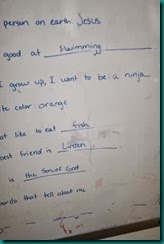 person on earth: Jesus
good at Swimming
I grow up, I want to be a ninja
te color orange
ot like to eat fish
best friend is Linden
is the Son of God
words that tell about me